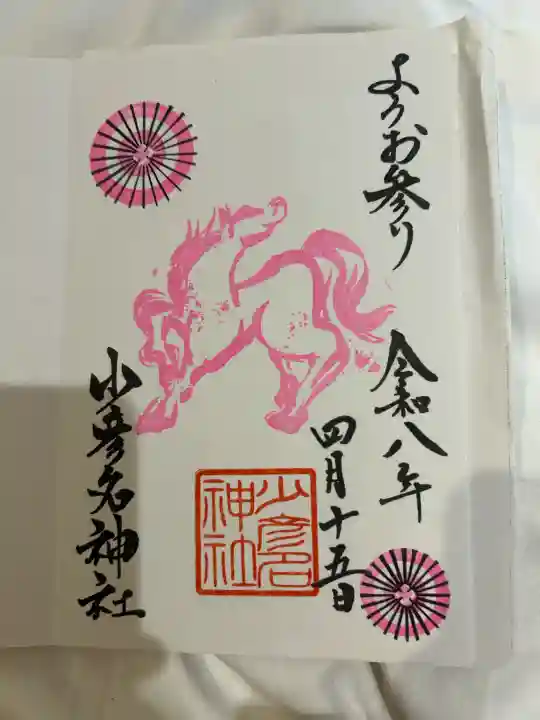 ようお参り
令和八年
四月十五日
少彦名
神社
少彦名神社